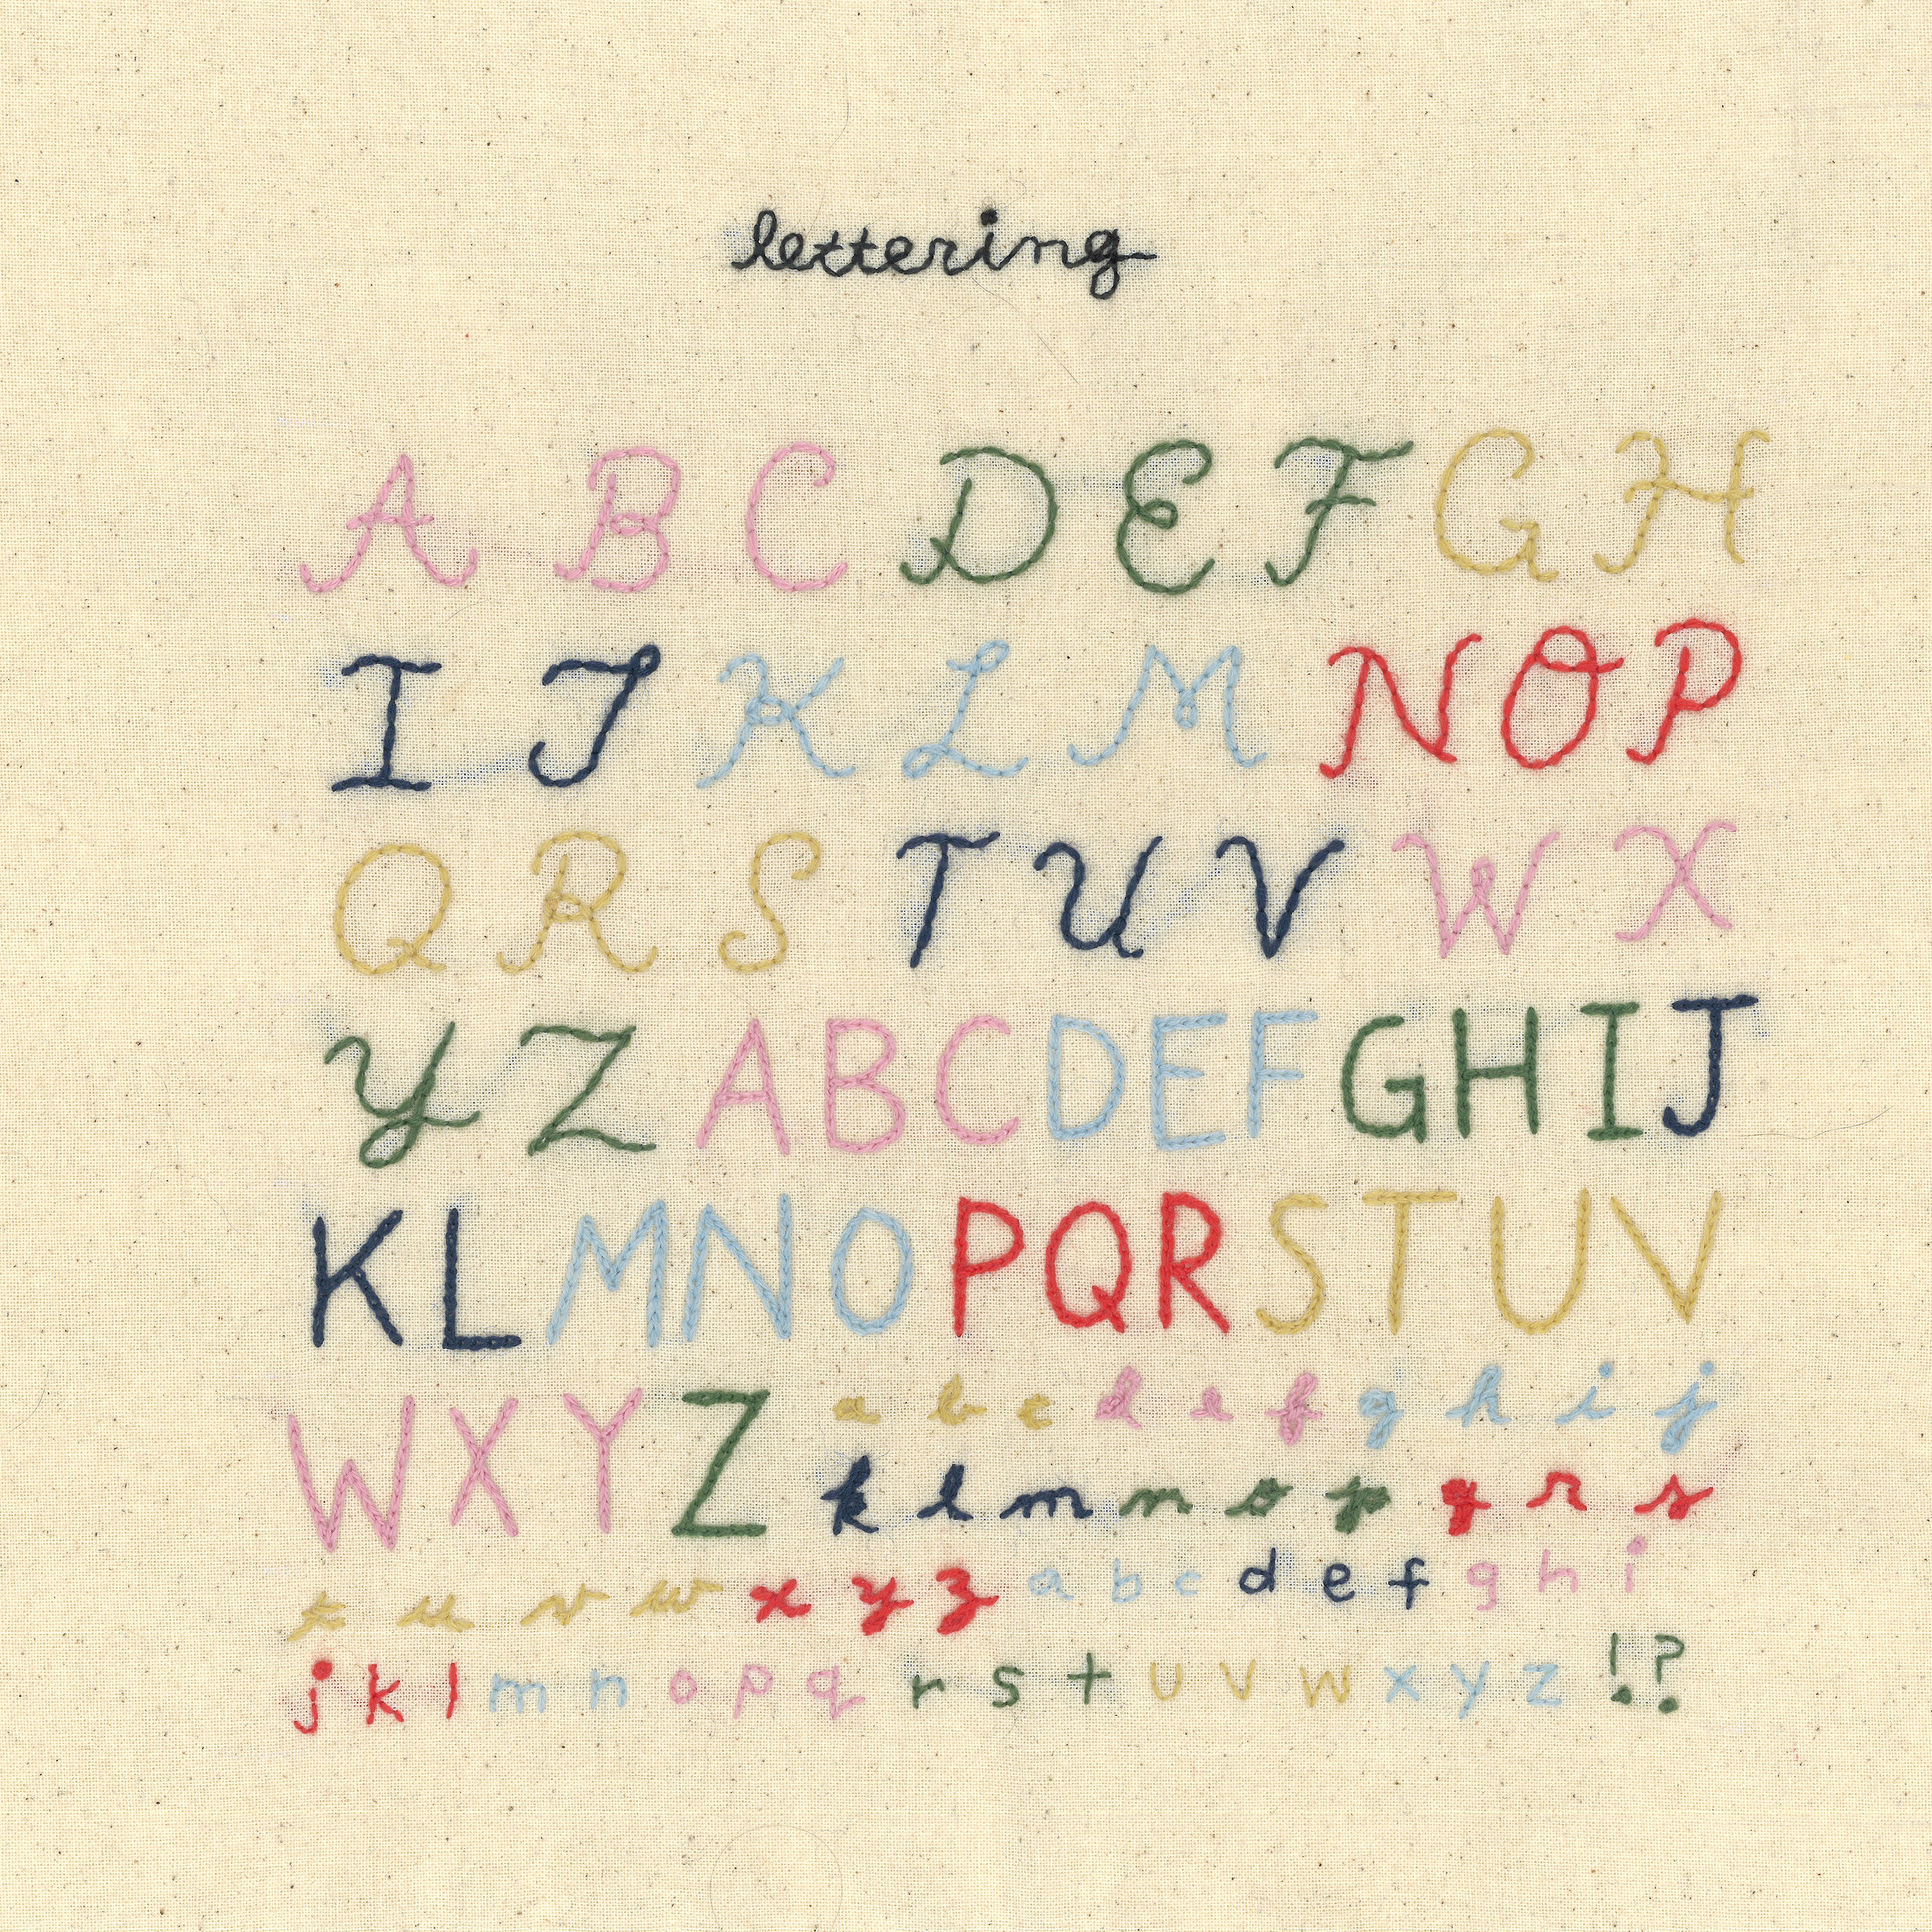 lettering
A B C D E F G H
I J K L M N O P
Q R S T U V W X
Y Z A B C D E F G H I J
K L M N O P Q R S T U V
W X Y Z a b c d e f g h i j
k l m n o p q r s
t u v w x y z a b c d e f g h i
j k l m n o p q r s t u v w x y z ! ?